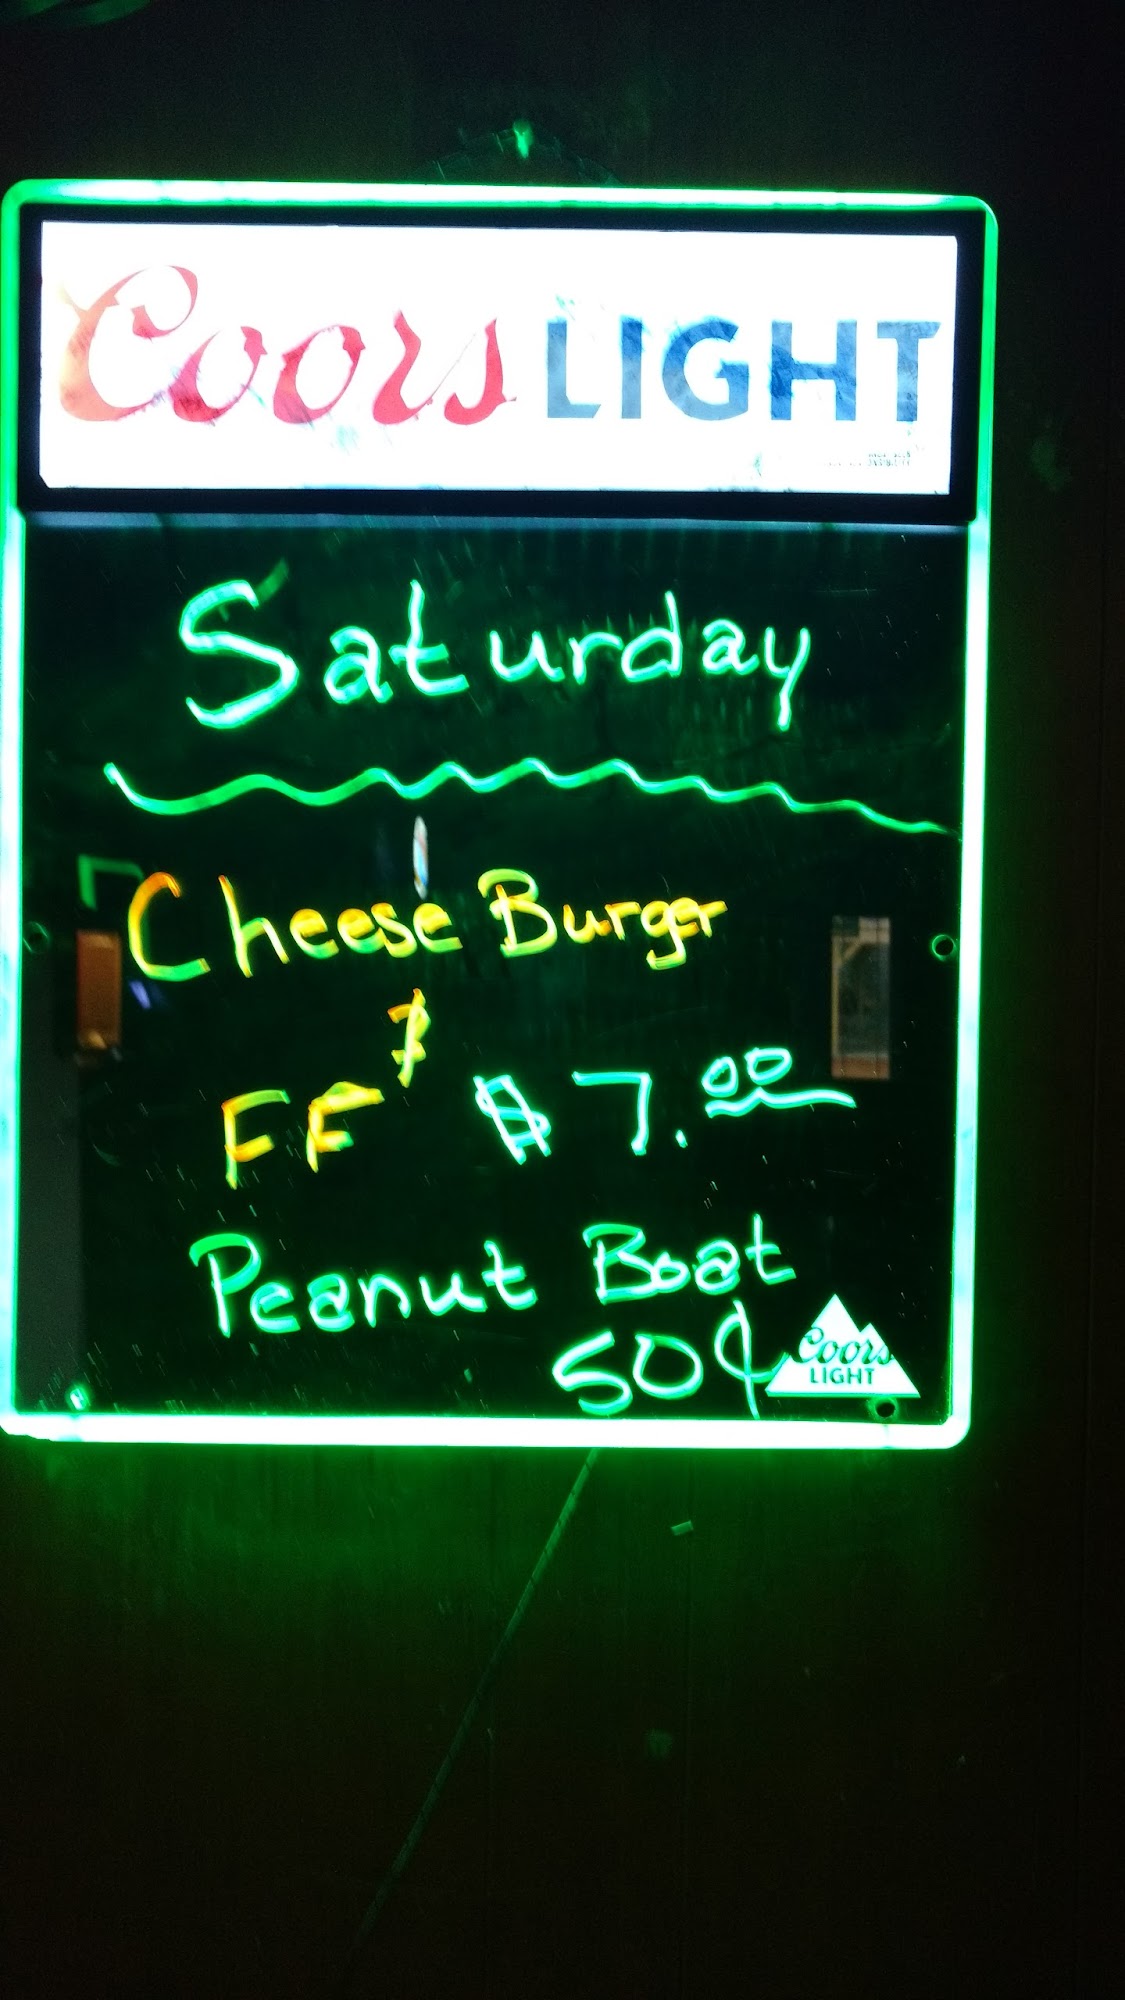 Coors LIGHT
Saturday
Cheese Burger
&
FF $7.00
Peanut Boat
50¢
Coors
LIGHT